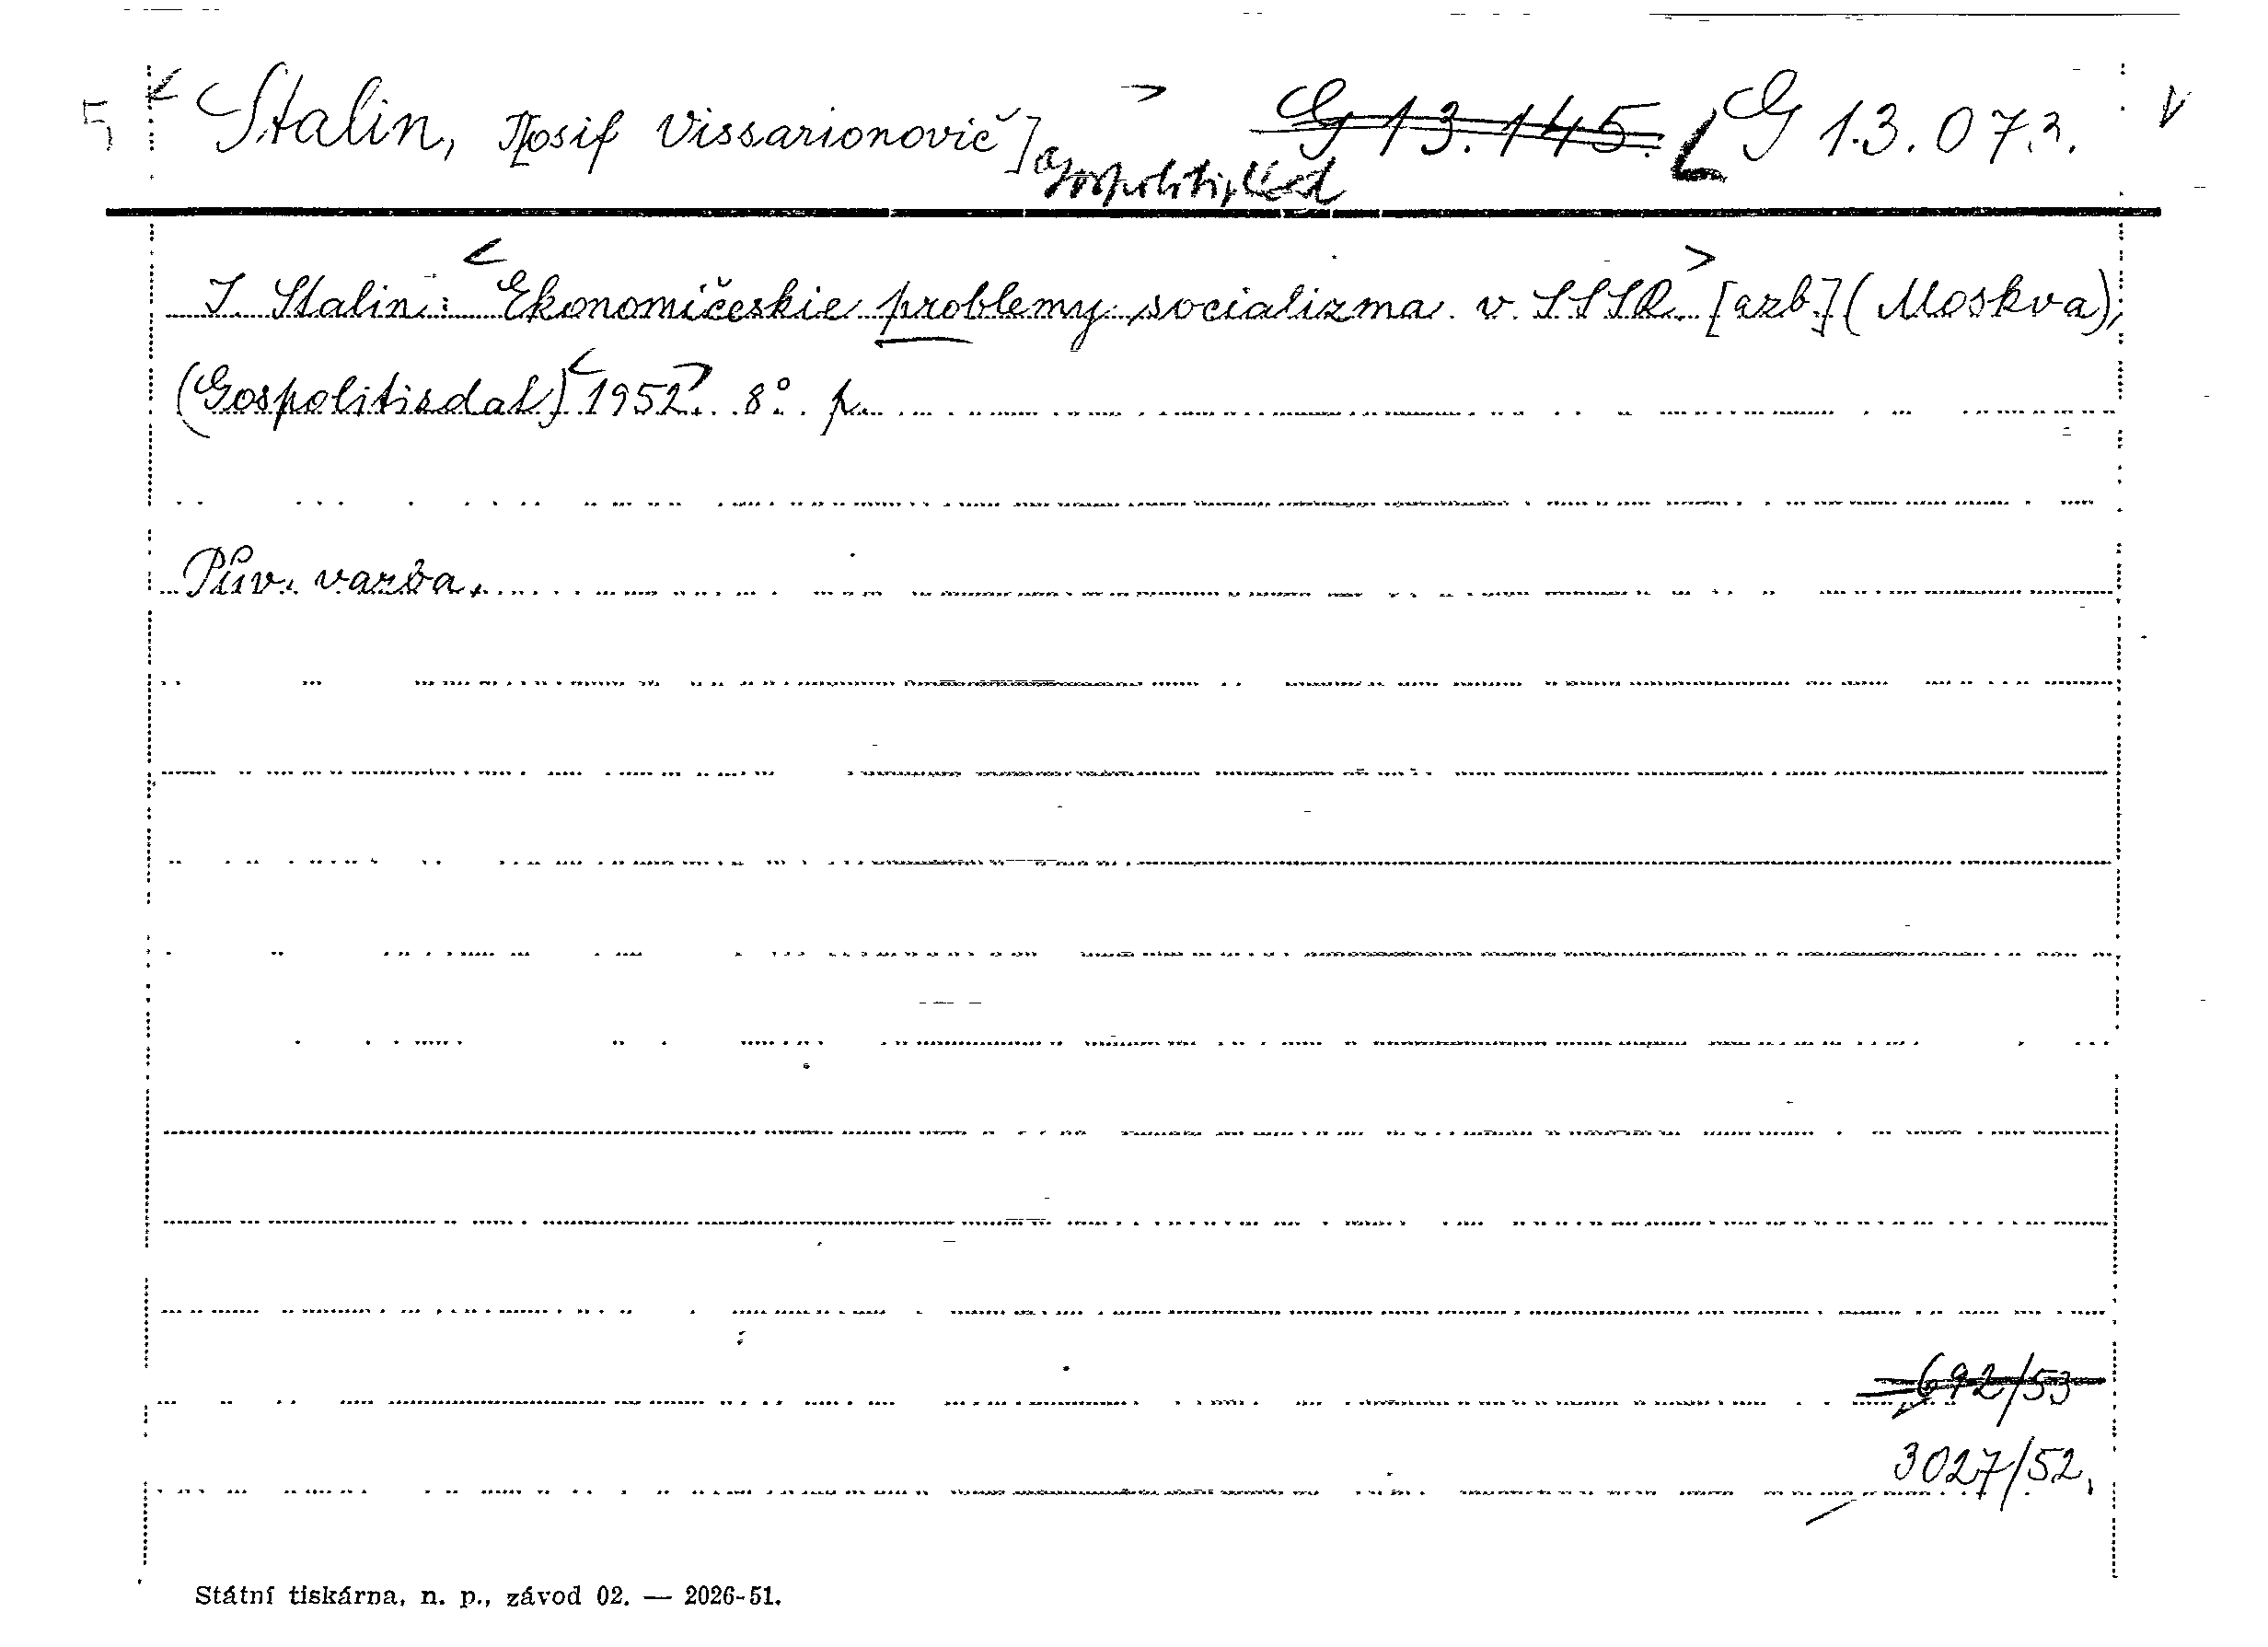 Stalin, J[osif Vissarionovič] G 13.145. G 13.073.
Gospolitizdat
J. Stalin: Ekonomičeskie problemy socializma v SSSR. [azb.] (Moskva),
(Gospolitisdat) 1952. 8°. p.
Pův. vazba.
692/53
3027/52.
Státní tiskárna, n. p., závod 02. — 2026-51.